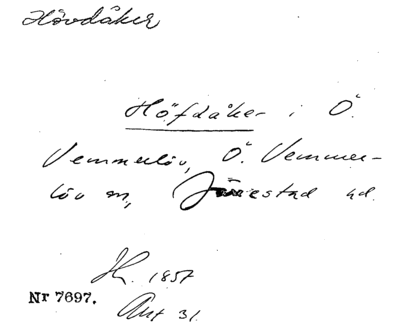 Hövdåker
Höfdåker i Ö.
Vemmerlöv, Ö. Vemmer-
löv sn, Järrestad hd.
1857
Nr 7697. Akt 31